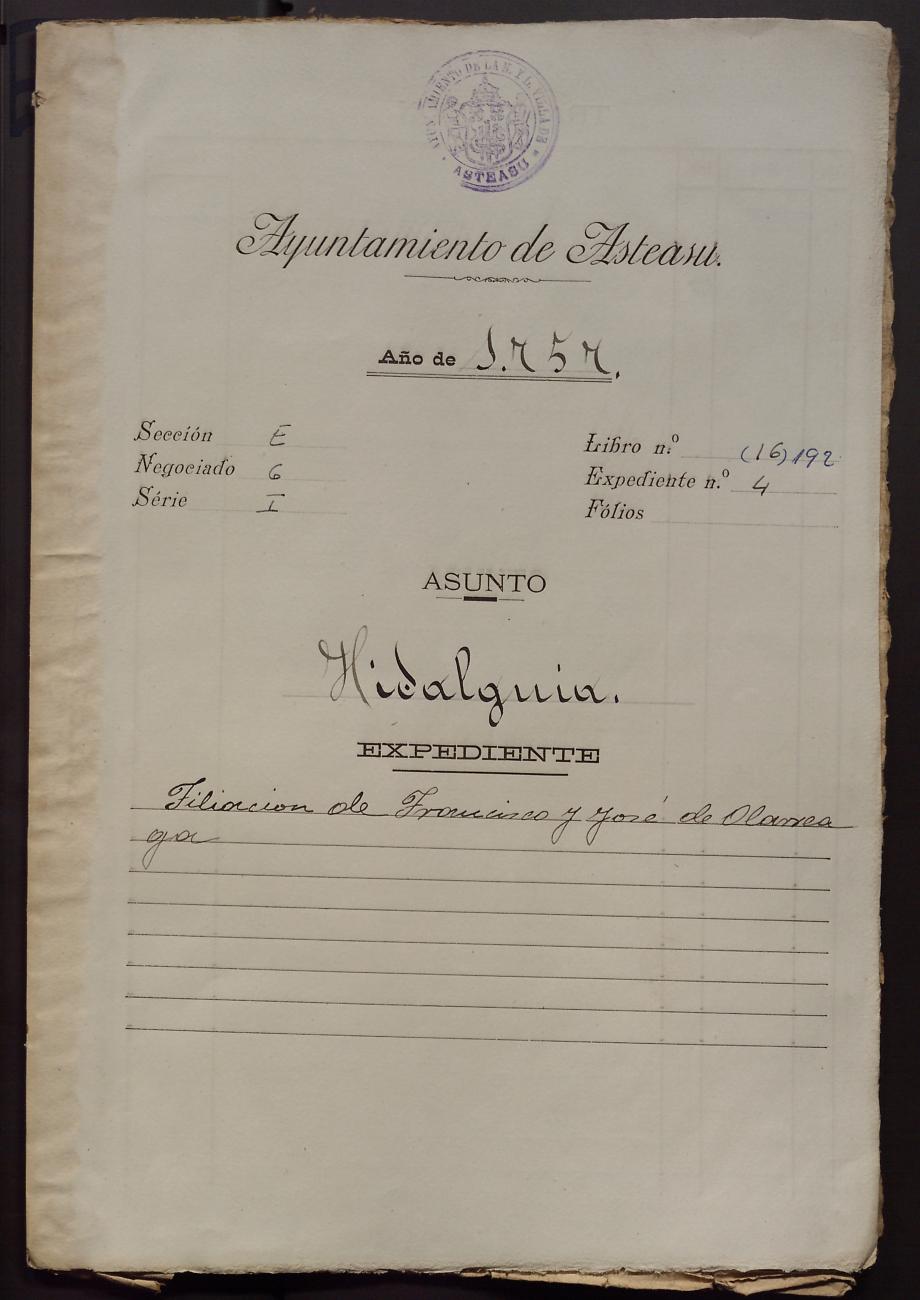 AYUNTAMIENTO DE LA N. Y L. VILLA DE
* ASTEASU *
Ayuntamiento de Asteasu.
Año de 1.757.
Sección E
Negociado 6
Série I
Libro n.º (16) 192
Expediente n.º 4
Fólios
ASUNTO
Hidalguia.
EXPEDIENTE
Filiacion de Francisco y José de Olarrea
ga